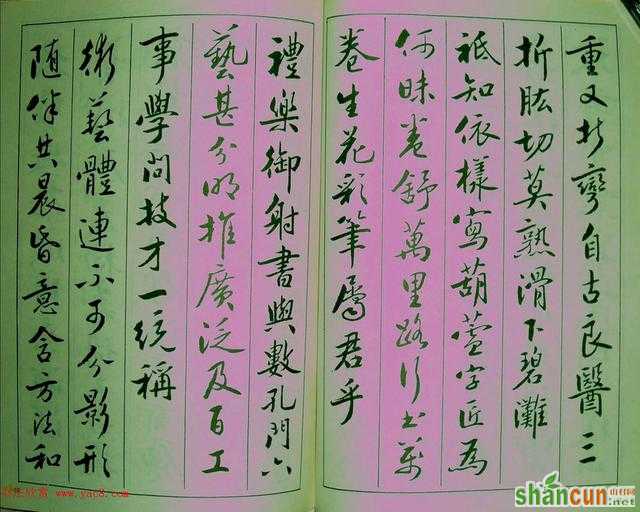 重又彎自古良醫三
折肱切莫熟滑下碧灘
祗知依樣寫葫蘆字匠為
何昧卷舒萬里路行书萬
卷生花彩筆屬君乎
禮樂御射書與數孔門六
藝甚分明推廣泛及百工
事學問技才一統稱
術藝體連不可分影形
随伴共晨昏意含方法和
书法欣赏 www.yac8.com
shancun
山村网
.net